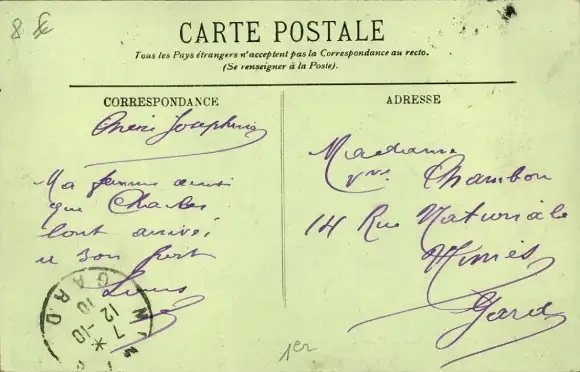 8 f
CARTE POSTALE
Tous les Pays étrangers n'acceptent pas la Correspondance au recto.
(Se renseigner à la Poste).
CORRESPONDANCE
Chère Josephine
Ma femme ainsi
que Charles
sont arrivé
a bon port
Louis
ADRESSE
Madame
Vve Chambon
14 Rue Nationale
Nimes
Gard
GARD
7 -10
12 10
1er